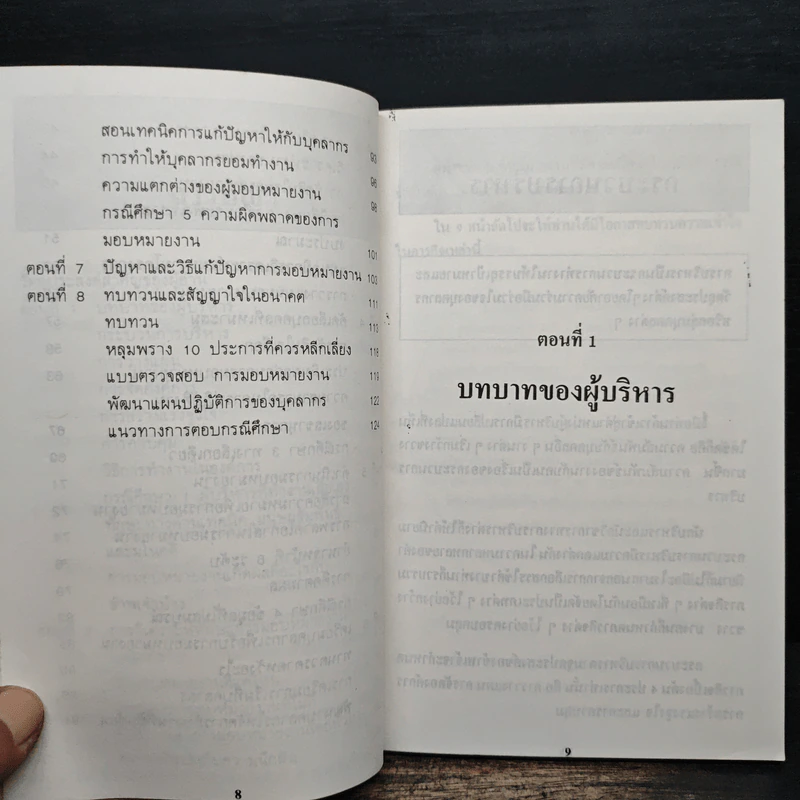 สอนเทคนิคการแก้ปัญหาให้กับบุคลากร 93
การทำให้บุคลากรยอมทำงาน 96
ความแตกต่างของผู้มอบหมายงาน 98
กรณีศึกษา 5 ความผิดพลาดของการ
มอบหมายงาน 101
ตอนที่ 7 ปัญหาและวิธีแก้ปัญหาการมอบหมายงาน 103
ตอนที่ 8 ทบทวนและสัญญาใจในอนาคต 111
ทบทวน 113
หลุมพราง 10 ประการที่ควรหลีกเลี่ยง 118
แบบตรวจสอบ การมอบหมายงาน 119
พัฒนาแผนปฏิบัติการของบุคลากร 122
แนวทางการตอบกรณีศึกษา 124
8
ตอนที่ 1
บทบาทของผู้บริหาร
9